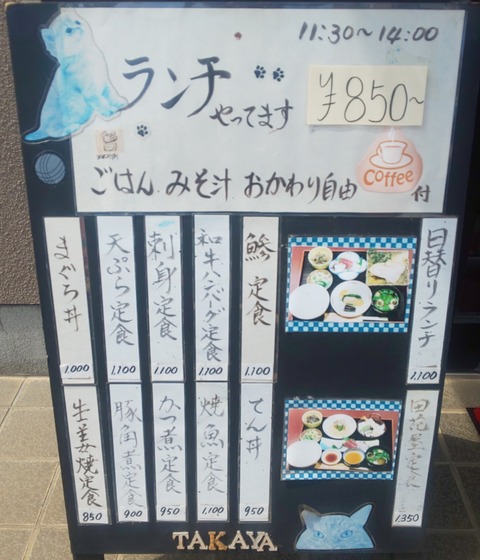 11:30~14:00
ランチ
やってます
¥850~
ごはん みそ汁 おかわり自由
coffee
付
日替りランチ
1.100
鯵定食
1.100
和牛ハンバーグ定食
1.100
刺身定食
1.100
天ぷら定食
1.100
まぐろ丼
1.000
定食
1.350
てん丼
950
焼魚定食
1.100
かつ煮定食
950
豚角煮定食
900
生姜焼定食
850
TAKAYA